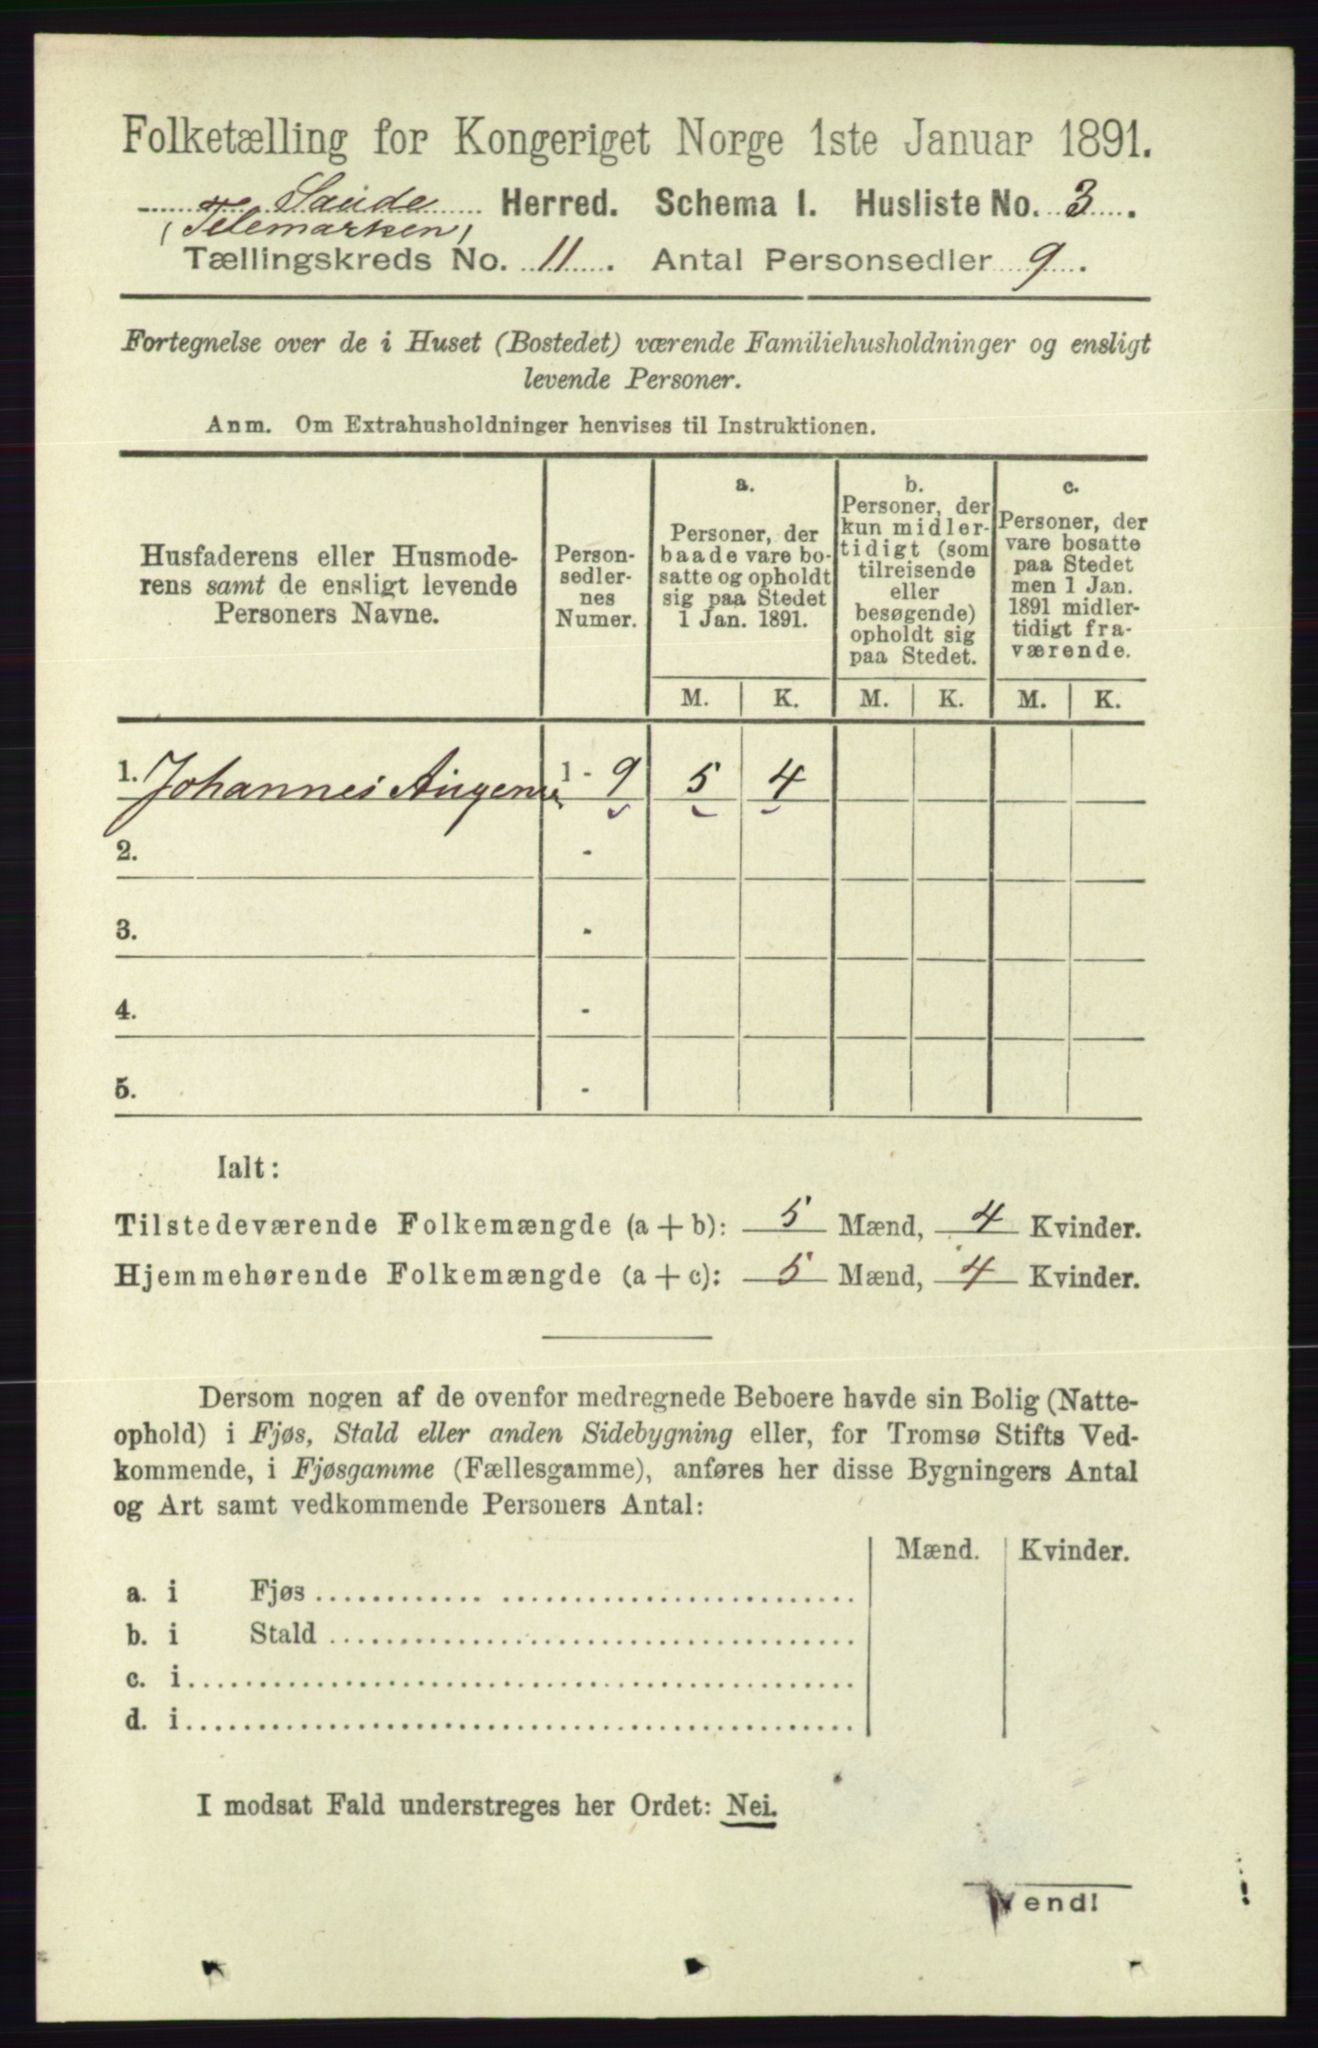 Folketælling for Kongeriget Norge 1ste Januar 1891.
Saude Herred. Schema I. Husliste No. 3.
(Telemarken)
Tællingskreds No. 11. Antal Personsedler 9.
Fortegnelse over de i Huset (Bostedet) værende Familiehusholdninger og ensligt
levende Personer.
Anm. Om Extrahusholdninger henvises til Instruktionen.
Husfaderens eller Husmode-
rens samt de ensligt levende
Personers Navne.
Person-
sedler-
nes
Numer.
a.
Personer, der
baade vare bo-
satte og opholdt
sig paa Stedet
1 Jan. 1891.
b.
Personer, der
kun midler-
tidigt (som
tilreisende
eller
besøgende)
opholdt sig
paa Stedet.
c.
Personer, der
vare bosatte
paa Stedet
men 1 Jan.
1891 midler-
tidigt fra-
værende.
M. K. M. K. M. K.
1. Johannes 1 - 9 5 4
2. -
3. -
4. -
5. -
Ialt:
Tilstedeværende Folkemængde (a + b): 5 Mænd, 4 Kvinder.
Hjemmehørende Folkemængde (a + c): 5 Mænd, 4 Kvinder.
Dersom nogen af de ovenfor medregnede Beboere havde sin Bolig (Natte-
ophold) i Fjøs, Stald eller anden Sidebygning eller, for Tromsø Stifts Ved-
kommende, i Fjøsgamme (Fællesgamme), anføres her disse Bygningers Antal
og Art samt vedkommende Personers Antal:
Mænd. Kvinder.
a. i Fjøs
b. i Stald
c. i
d. i
I modsat Fald understreges her Ordet: Nei.
Vend!